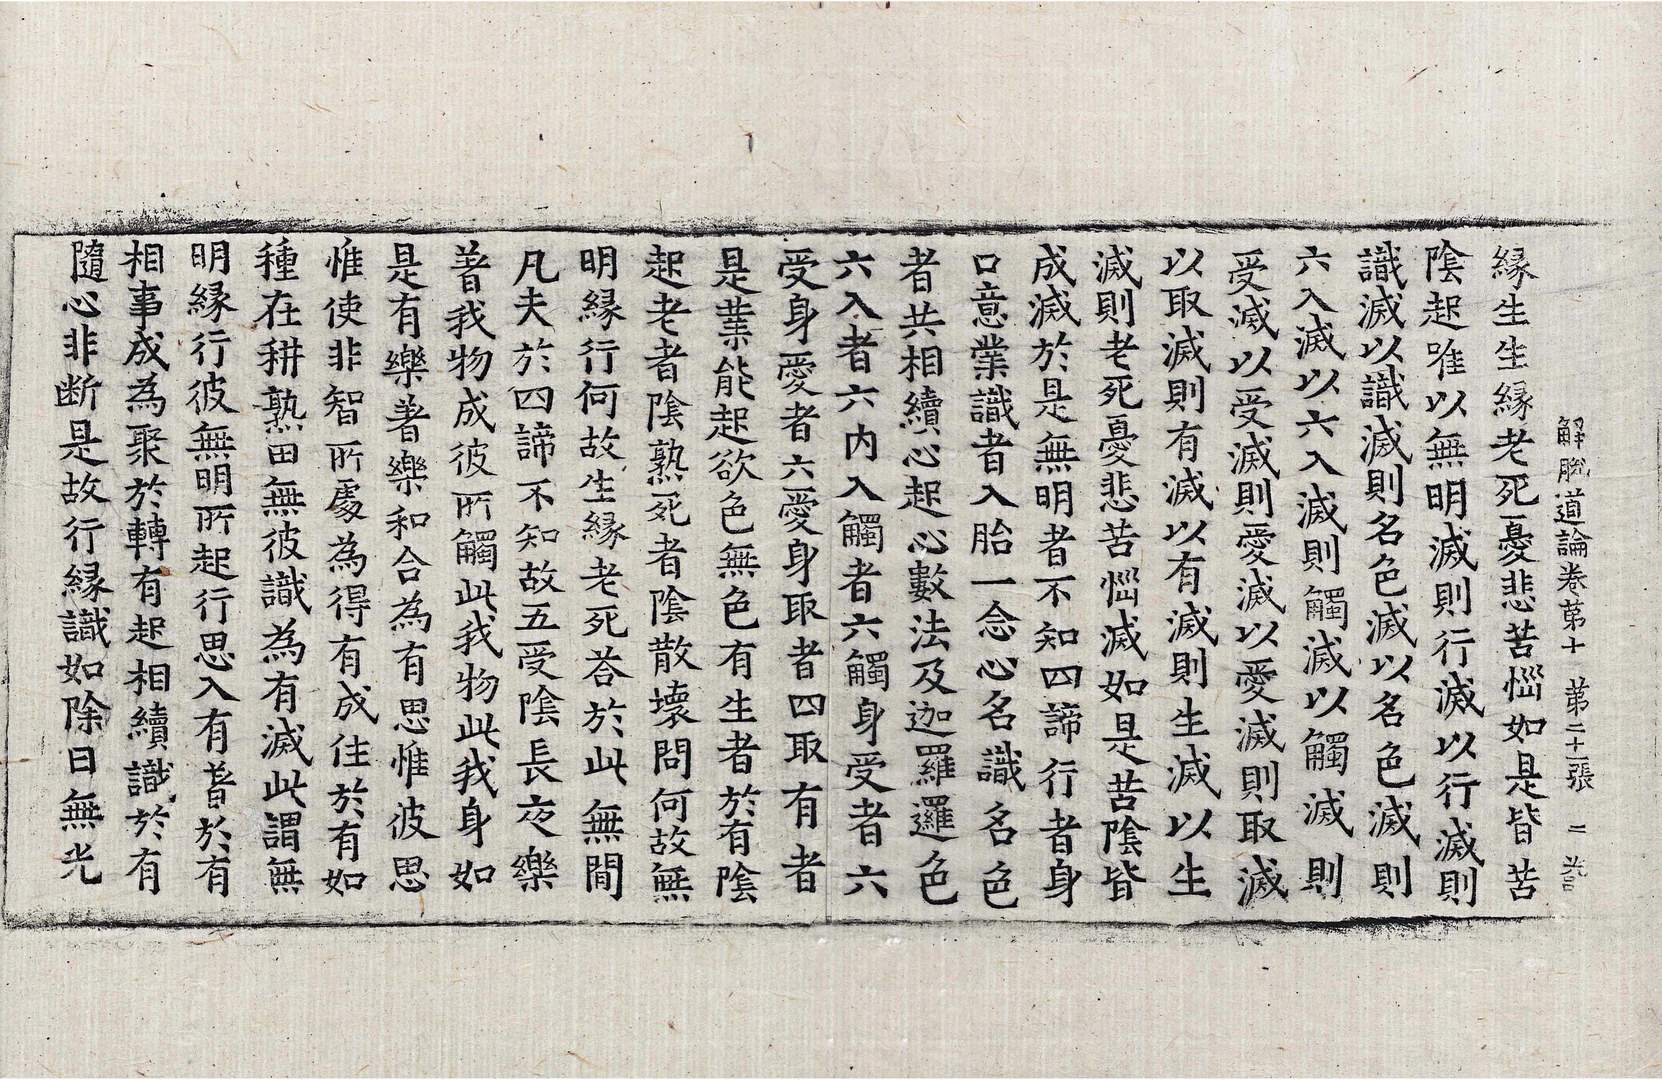 解脫道論卷第十　第二十二張　二　若
緣生生緣老死憂悲苦惱如是皆苦
陰起唯以無明滅則行滅以行滅則
識滅以識滅則名色滅以名色滅則
六入滅以六入滅則觸滅以觸滅則
受滅以受滅則愛滅以愛滅則取滅
以取滅則有滅以有滅則生滅以生
滅則老死憂悲苦惱滅如是苦陰皆
成滅於是無明者不知四諦行者身
口意業識者入胎一念心名識名色
者共相續心起心數法及迦羅邏色
六入者六內入觸者六觸身受者六
受身愛者六愛身取者四取有者
是業能起欲色無色有生者於有陰
起老者陰熟死者陰散壞問何故無
明緣行何故生緣老死荅於此無間
凡夫於四諦不知故五受陰長夜樂
著我物成彼所觸此我物此我身如
是有樂著樂和合為有思惟彼思
惟使非智所處為得有成住於有如
種在耕熟田無彼識為有滅此謂無
明緣行彼無明所起行思入有著於有
相事成為聚於轉有起相續識於有
隨心非断是故行緣識如除日無光